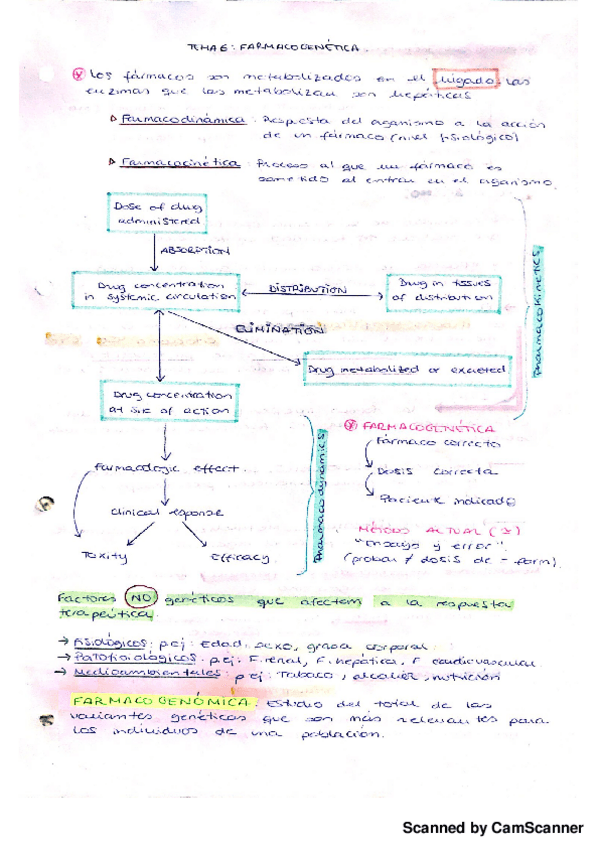 TEMA 6: FARMACOGENÉTICA.
Los fármacos son metabolizados en el hígado. Las
enzimas que los metabolizan son hepáticas
Farmacodinámica: Respuesta del organismo a la acción
de un fármaco (nivel fisiológico)
Farmacocinética: Proceso al que un fármaco es
sometido al entrar en el organismo.
Dose of drug
administered
ABSORPTION
Drug concentration
in systemic circulation
DISTRIBUTION
Drug in tissues
of distribution
ELIMINATION
Drug metabolized or excreted
Pharmacokinetics
Drug concentration
at site of action
Farmacologic effect.
Clinical response
Toxity
Efficacy
Pharmacodynamics
FARMACOGENÉTICA
Fármaco correcto
Dosis correcta
Paciente indicado
MÉTODO ACTUAL
"Ensayo y error".
(probar ≠ dosis de - form).
Factores NO genéticos que afectan a la respuesta
terapéutica.
→ Fisiológicos: p.ej: Edad, sexo, grasa corporal
→ Patofisiológicos: p.ej: F. renal, F. hepática, F cardiovascular
→ Medioambientales: p.ej: Tabaco, alcohol, nutrición
FARMACOGENÓMICA: Estudio del total de las
variantes genéticas que son más relevantes para
los individuos de una población.
Scanned by CamScanner